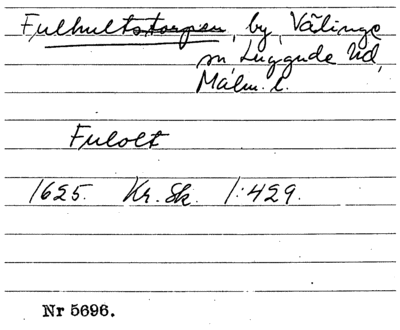 Fulhultstorpen, by, Välinge
sn Luggude hd,
Malm. l.
Fulolt
1625. Kr. Sk. 1:429.
Nr 5696.